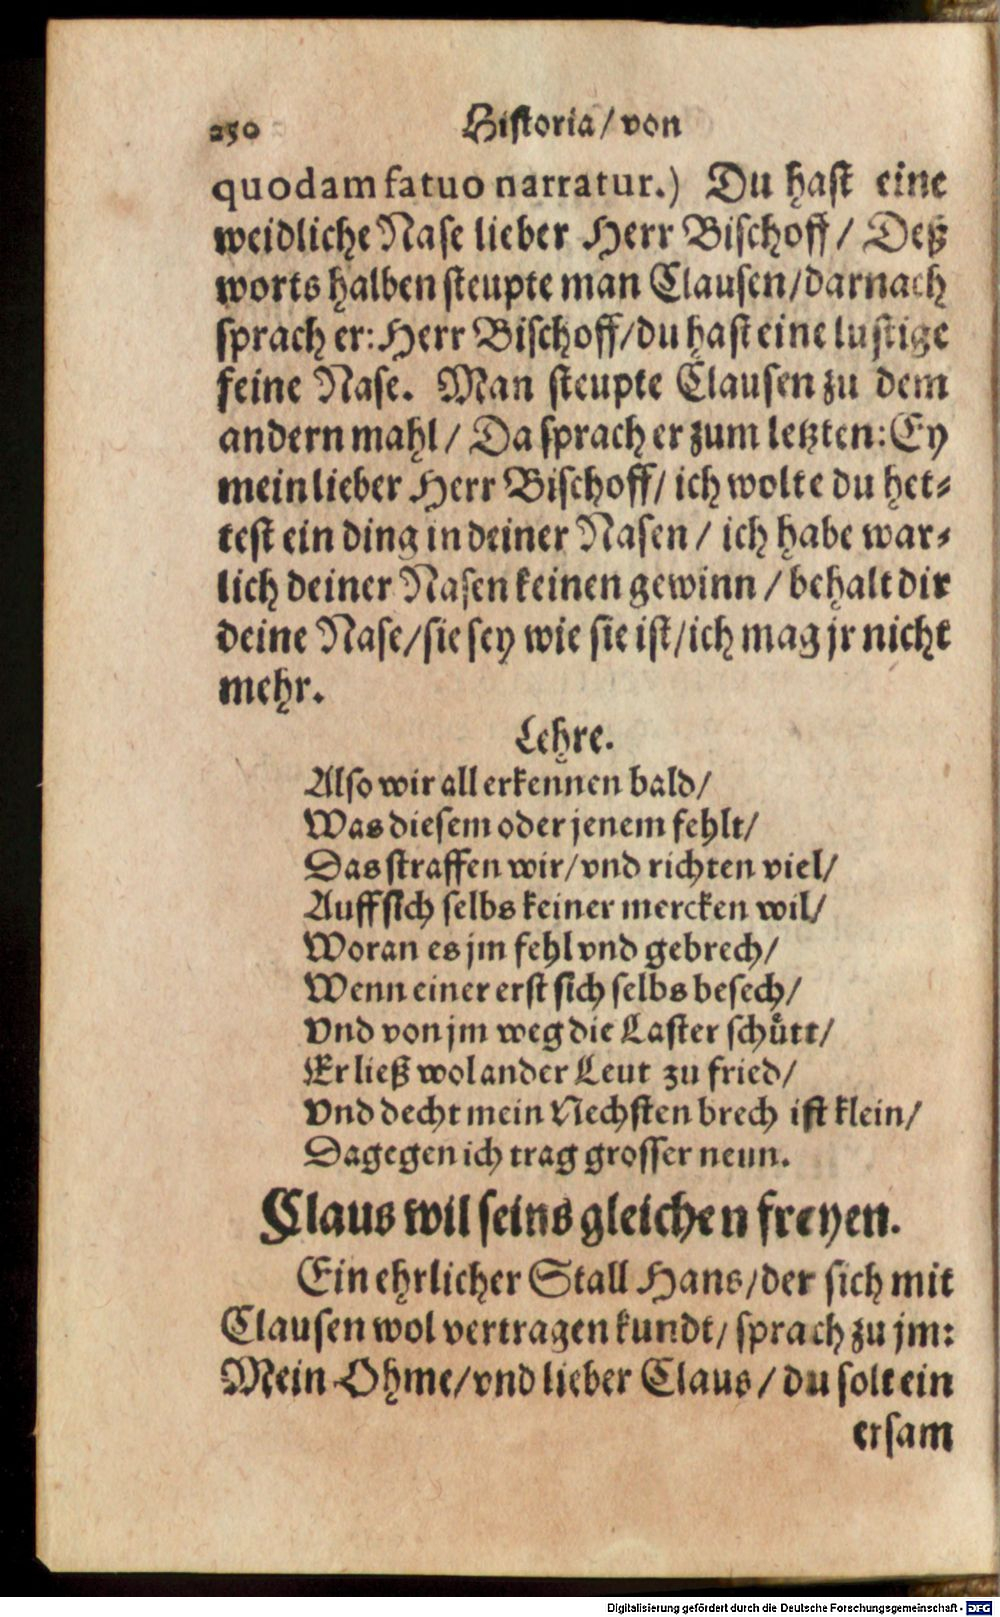 250 Historia/ von
quodam fatuo narratur.) Du hast eine
weidliche Nase lieber Herr Bischoff/ Deß
worts halben steupte man Clausen/darnach
sprach er: Herr Bischoff/du hast eine lustige
feine Nase. Man steupte Clausen zu dem
andern mahl/ Da sprach er zum letzten: Ey
mein lieber Herr Bischoff/ ich wolte du het-
test ein ding in deiner Nasen/ ich habe war-
lich deiner Nasen keinen gewinn/ behalt dir
deine Nase/sie sey wie sie ist/ich mag jr nicht
mehr.
Lehre.
Also wir all erkennen bald/
Was diesem oder jenem fehlt/
Das straffen wir/ vnd richten viel/
Auff sich selbs keiner mercken wil/
Woran es jm fehl vnd gebrech/
Wenn einer erst sich selbs besech/
Vnd von jm weg die Laster schuͤtt/
Er ließ wol ander Leut zu fried/
Vnd decht mein Nechsten brech ist klein/
Dagegen ich trag grosser neun.
Claus wil seins gleichen freyen.
Ein ehrlicher Stall Hans/der sich mit
Clausen wol vertragen kundt/ sprach zu jm:
Mein Ohme/vnd lieber Claus/ du solt ein
ersam
Digitalisierung gefördert durch die Deutsche Forschungsgemeinschaft - DFG